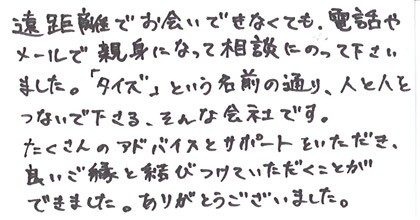 遠距離でお会いできなくても、電話や
メールで親身になって相談にのって下さい
ました。「タイズ」という名前の通り、人と人を
つないで下さる、そんな会社です。
たくさんのアドバイスとサポートをいただき、
良いご縁と結びつけていただくことが
できました。ありがとうございました。